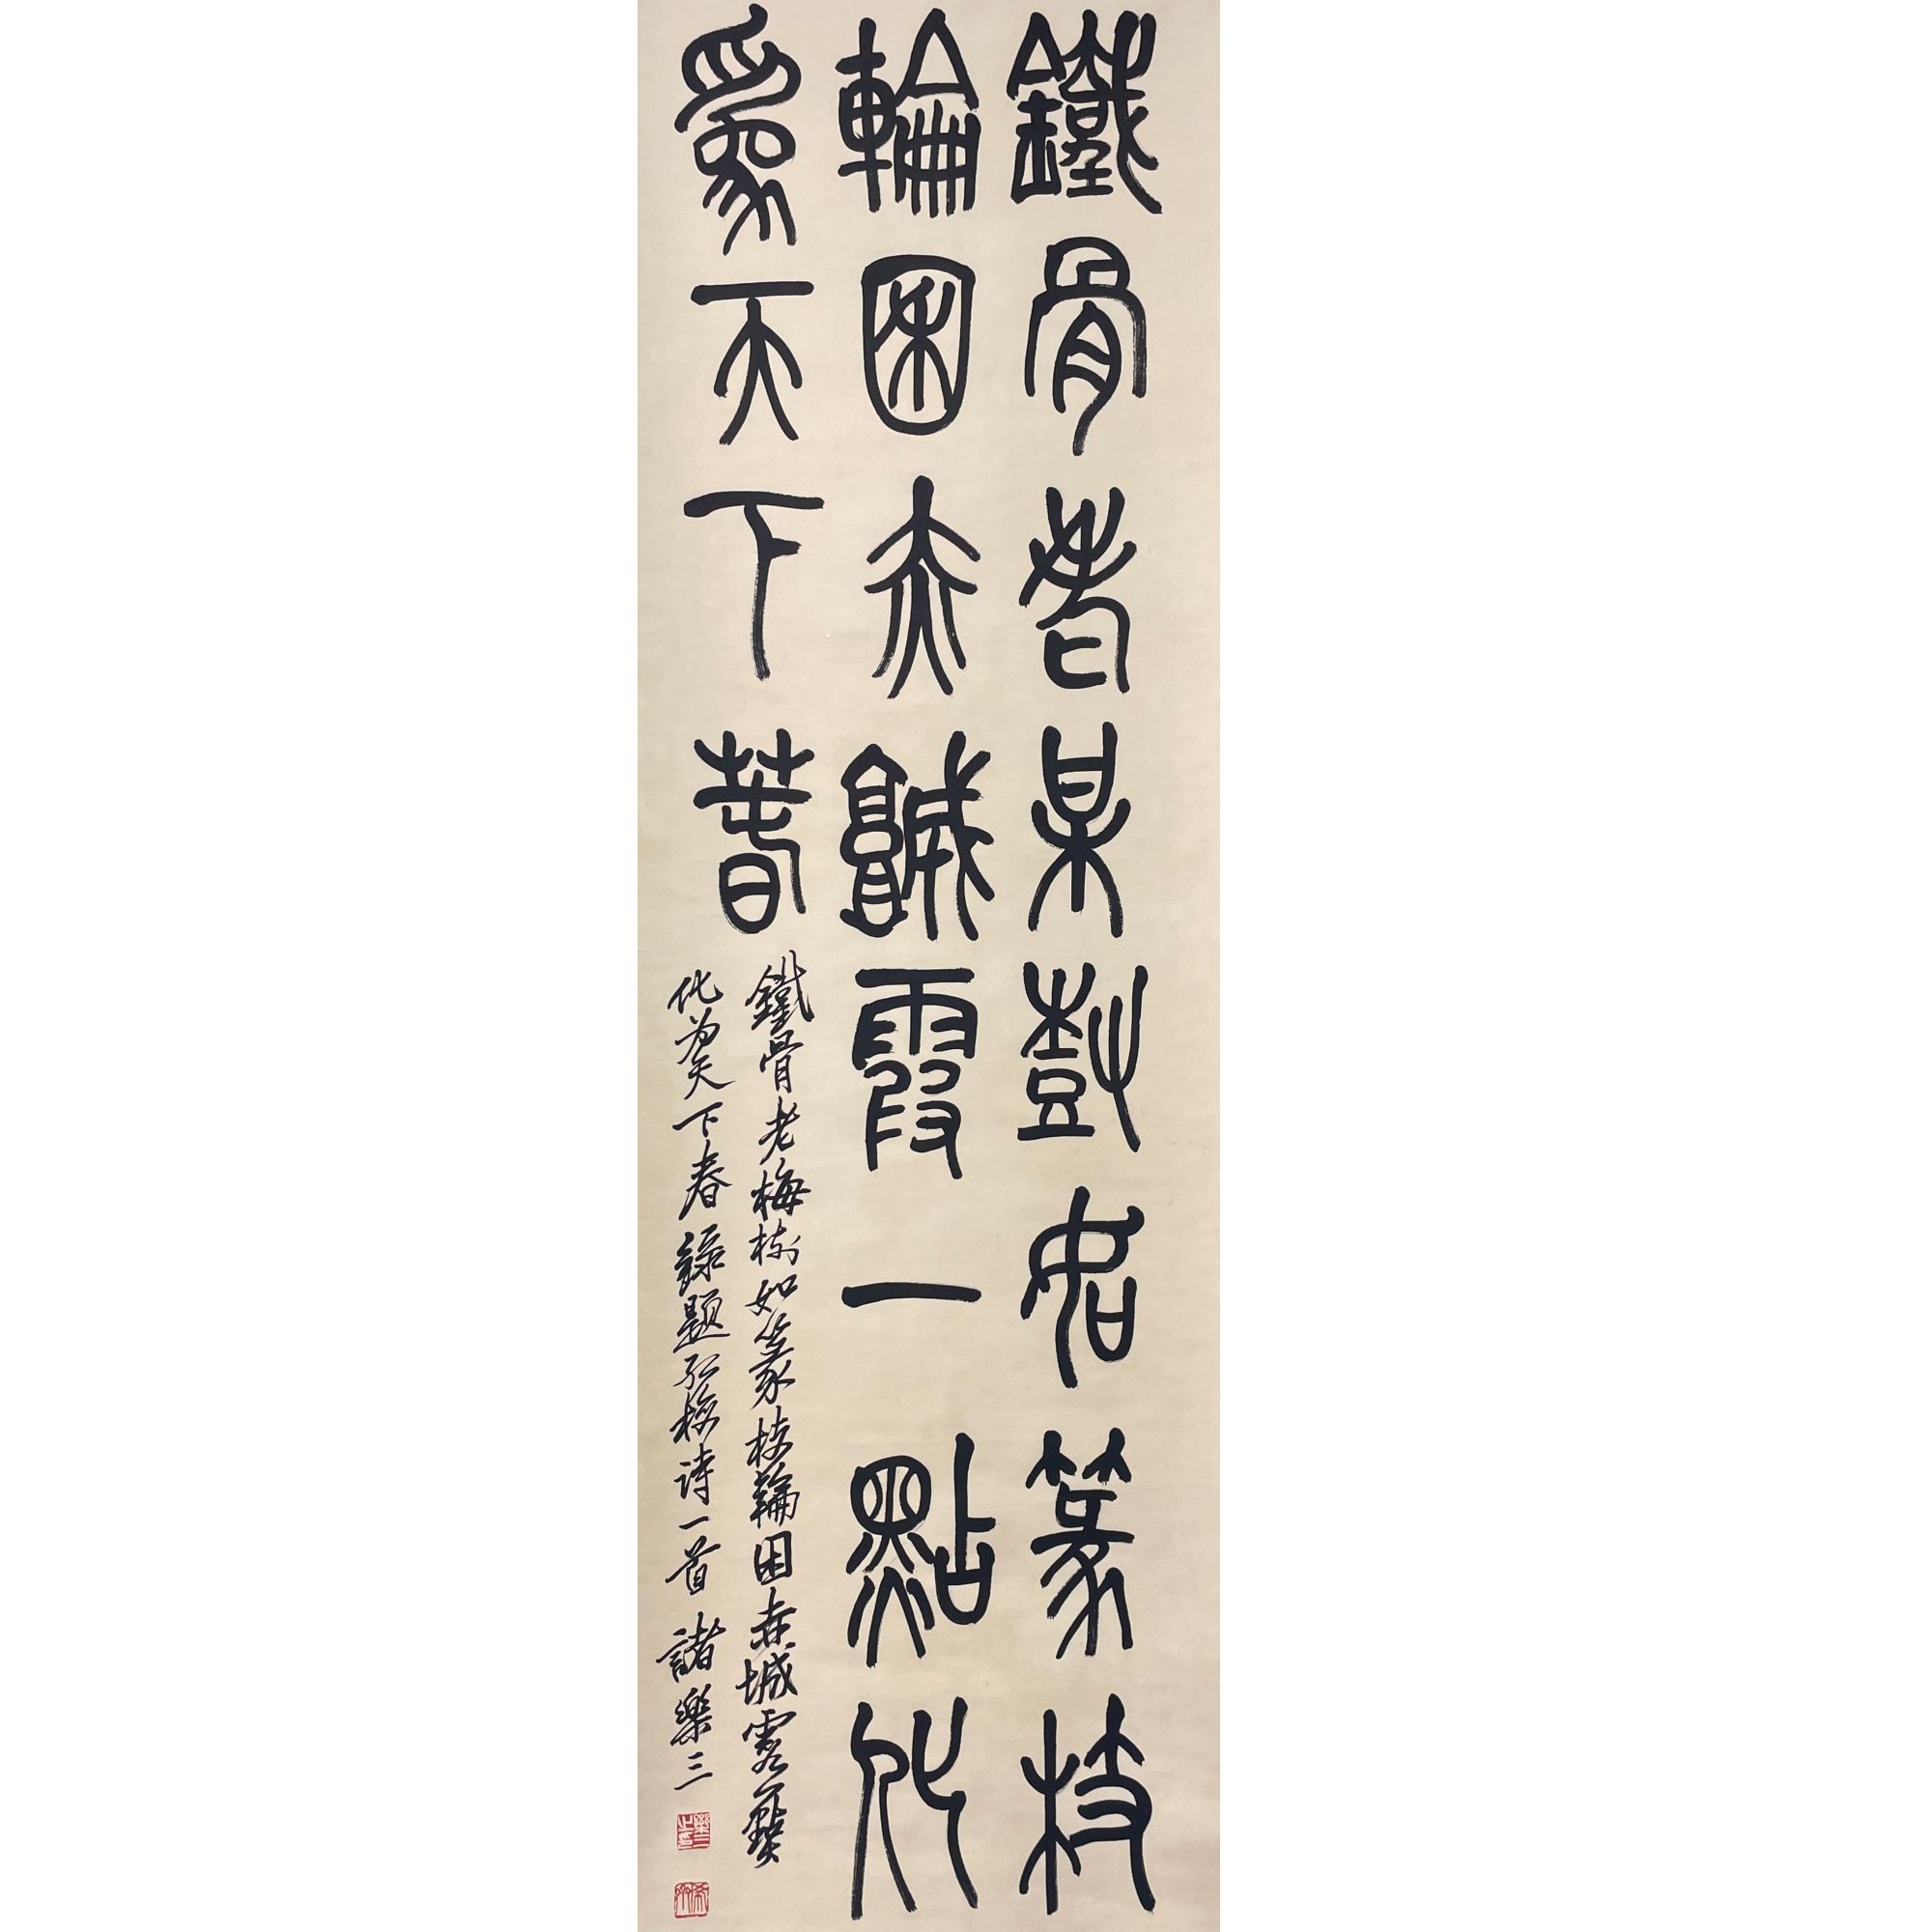 鐵骨老某尌如篆枝
輪囷赤城霞一點化
爲天下春
鐵骨老梅樹如篆枝輪囷赤城霞一點
化为天下春錄題紅梅詩一首 諸樂三